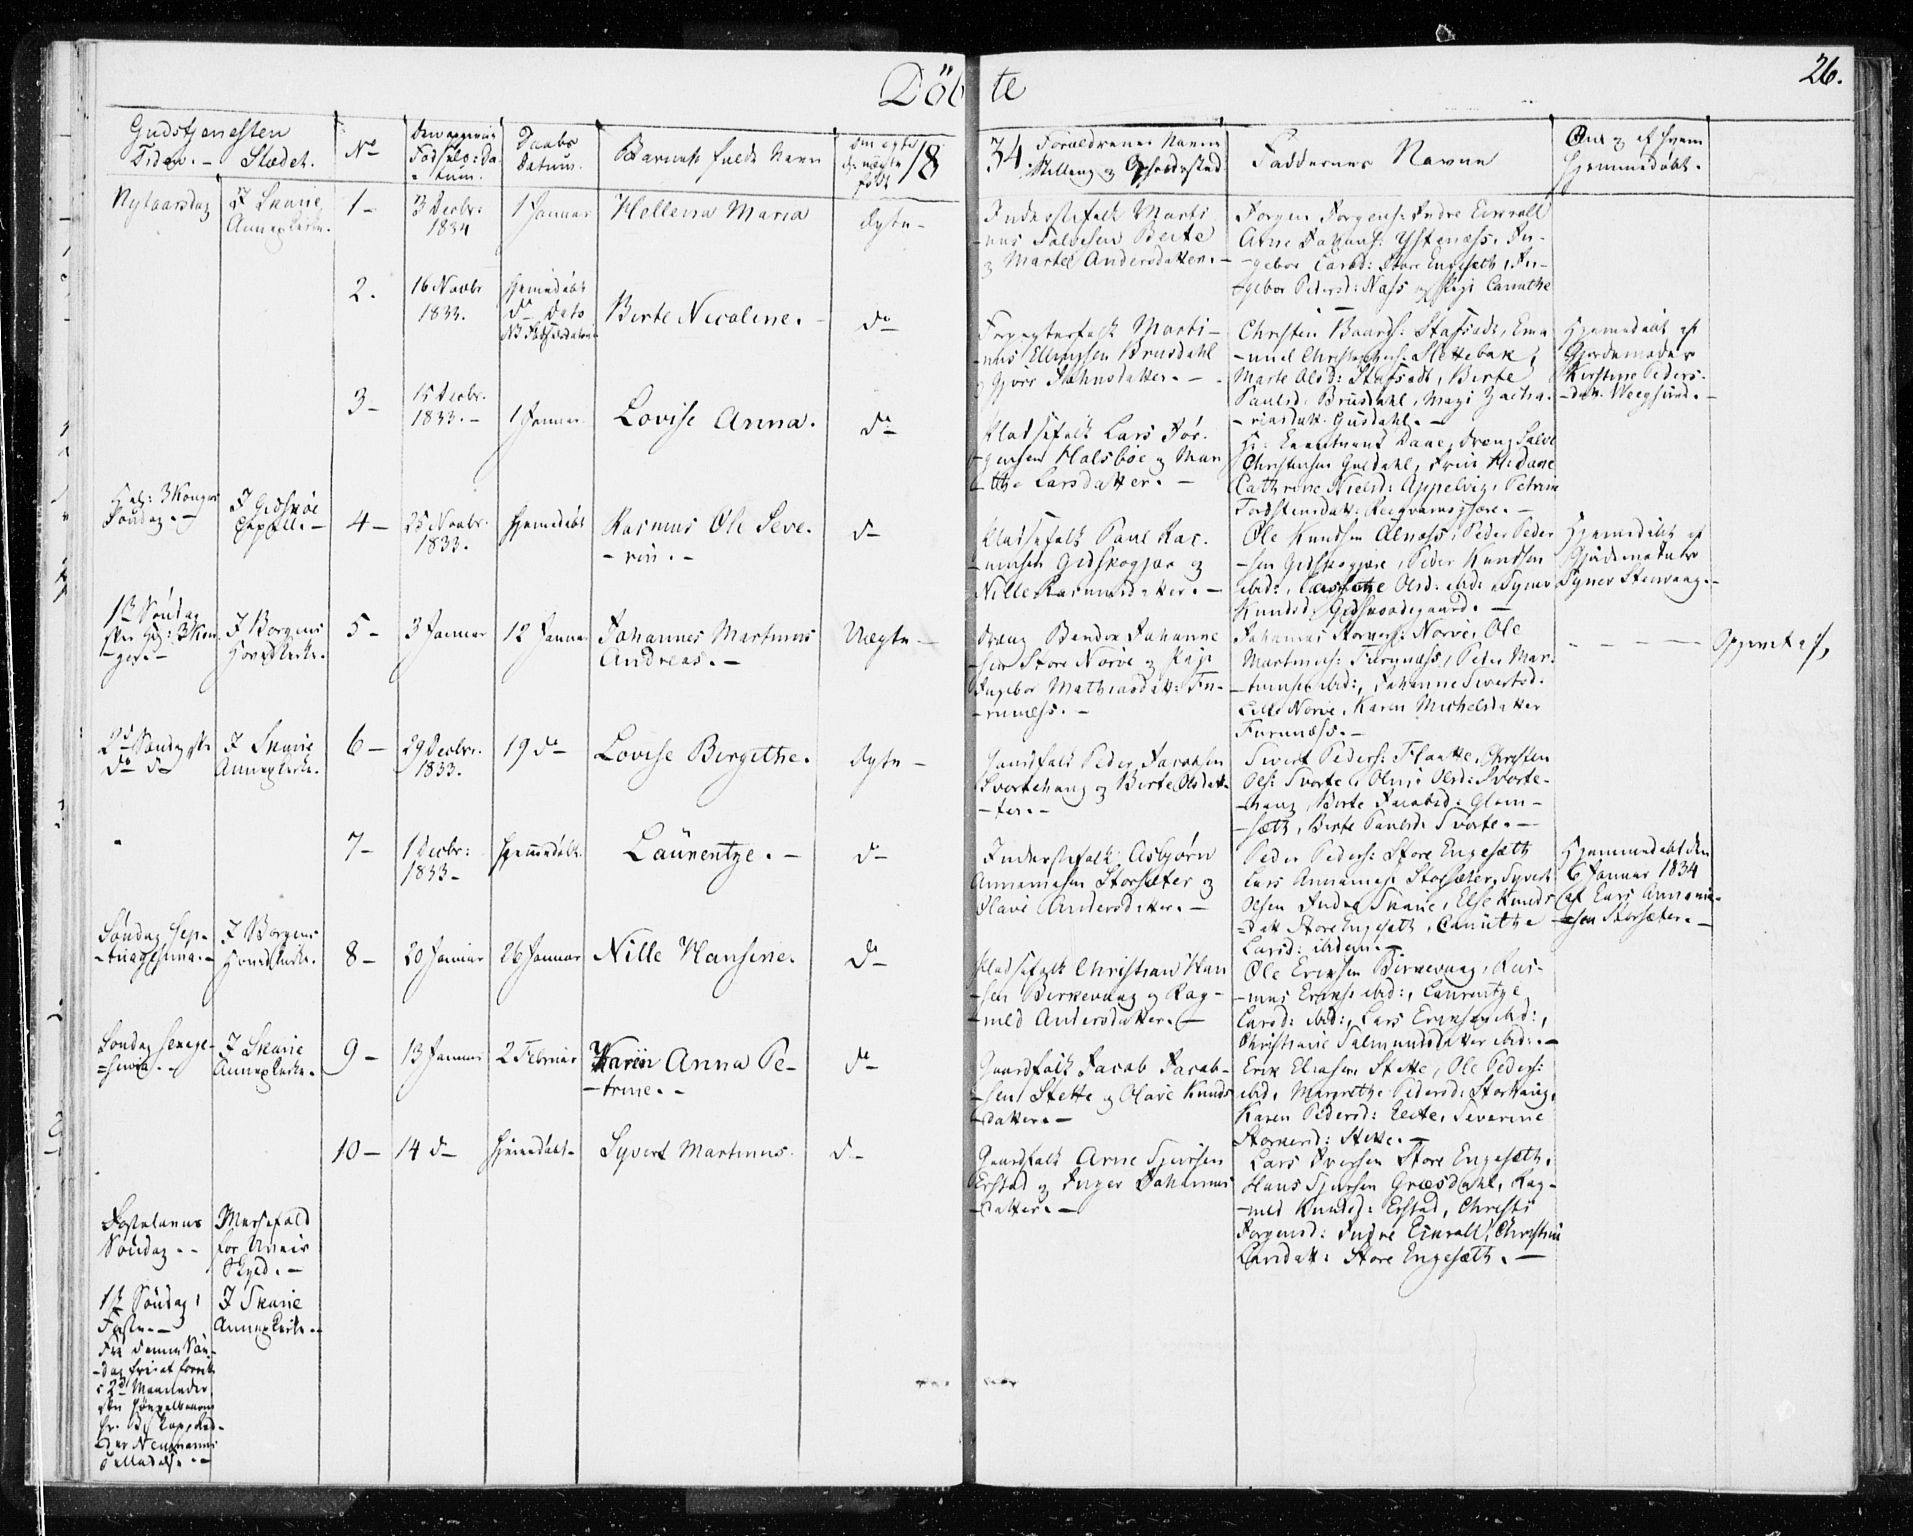 Döbte
26.
1834
Gudstjenesten
Tiden. - Stædet.
No
Fødsels-Da-
tum.
Daabs
Datum.
Barnets fulde Navn
Om ægte
födt
Forældrenes Navne
Stilling og Opholdsted
Faddernes Navne
Om og af hvem
hjemmedøbt.
Nytaarsdag
I Skarie
Annexkirke.
1-
3 Decbr:
1834
1 Januar
Hellena Maria
Ægte-
Inderstefolk Marti-
nus Salvesen Berte
og Marte Andersdatter. -
Jørgen Jørgens: Indre Emvall
Arne Ystenæs, In-
gebor Larsd: Store Engesæth, In-
gebor Pedersd: Næss og Pige Canuthe
2.
16 Novbr
1833.
hjemedöbt
do Dato
Berte Nicoline. -
do
Marti-
nus Ellingsen Brusdahl
og Gjöre Johnsdatter. -
Christen Baards: Stafsedt, Ema-
-nuel Slettebak,
Marte Olsd: Stafsedt, Berte
Paulsd: Brusdahl, Magi Zacha-
-riasdatt. Gusdahl. -
Hjemedöbt af
Gjordemoder
Kirstine Peders-
-datt. Veegsund. -
3-
15 Decbr.
1833. -
1 Januar
Lovise Anna.
do
Pladsefolk Lars Jör-
gensen Holsböe og Mar-
-the Larsdatter. -
Daae, Dreng Salve
Christensen Guldahl, Daae
Cathrine Nielsd: Appelvig, Petrine
Torstensdatt.
Hel: 3 Konger
Søndag. -
I Gidskøe
Capell. -
4-
25 Novbr.
1833.
hjemedöbt
Rasmus Ole Seve-
-rin. -
do
Pladsefolk Paul Ras-
mussen Gidskogjær og
Nille Rasmusdatter. -
Ole Knudsen Alnæss, Peder Peder-
-sen Gidskogjære, Peder Knudsen
ibid:, Olsd: ibid:, Synev
Knudsd: Gidskoodegaard. -
Hjemedöbt af
Gjordemoder
Synev Steinvaag. -
1ste Söndag
efter Hel: 3 Kon-
-ger. -
I Borgens
Hovedkirke.
5-
3 Januar
12 Januar
Johannes Martinus
Andreas. -
Uægte-
Dreng Bendix Johanne-
-sen Store Nörve og Pige
Ingebor Mathiasdatt: Fu-
-runæss. -
Johannes Nörve, Ole
Martinus: Furunæss, Peder Mar-
-tinusen ibid:, Johanne Sivertsd.
Lille Nörve, Karen Michelsdatter
Furunæss. -
2den Søndag efter
do do
I Skarie
Annexkirke.
6-
29 Decbr.
1833.
19 do
Lovise Birgithe.
Ægte-
Huusfolk Peder Jacobsen
Svortehaug og Berte Olsdat-
-ter. -
Sivert Peders: Flaatte, Christen
Ols: Svorte, Oline Olsd: Svorte-
-haug, Berte Jacobsd: Glom-
-sæth, Berte Paulsd: Svorte. -
7-
1 Decbr:
1833-
hjemedöbt.
Laurentze. -
do
Inderstefolk Asbjørn
Annaniasen Storsæter og
Olave Andersdatter. -
Peder Peders: Store Engesæth
Lars Annanias: Storsæter, Syvert
Olsen Indre Skarie, Else Knuds-
datt: Store Engesæth, Canuthe
Larsd: ibidem. -
Hjemmedöbt den
6 Januar 1834
af Lars Annania-
-sen Storsæter. -
Söndag Sep-
-tuagesima. -
I Borgens
Hovedkirke.
8-
20 Januar
26 Januar
Nille Hansine.
do
Pladsefolk Christian Han-
-sen Birkevaag og Rag-
-nild Andersdatter. -
Ole Eriksen Birkevaag, Ras-
-mus Eriks: ibid:, Laurentze
Larsd: ibid:, Lars Eriksen ibid:,
Christiane Salmundsdatter ibid: -
Söndag Sexage-
-sima. -
I Skarie
Annexkirke.
9-
13 Januar
2 Februar
Karen Anna Pe-
-trine. -
do
Gaardfolk Jacob Jacob-
-sen Stette og Olave Knuds-
datter. -
Erik Eliasen Stette, Ole Peders:
ibid, Margrethe Pedersd: Storhaug,
Karen Pedersd: Leite, Severine
Storkersd: Stette. -
10-
14 do
hjemedöbt-
Syvert Martinus.
do
Gaardfolk Arne Sjursen
Erstad og Inger Johannes-
datter. -
Lars Iversen Store Engesæth,
Hans Sjursen Græsdahl, Rag-
-nild Knudsd: Erstad, Christi
Jørgensd: Indre Emvall, Christine
Larsdatt: Store Engesæth. -
Fastelavns
Söndag. -
Messefald
for Uveir
Skyld. -
1ste Söndag i
Faste. -
I Skarie
Annexkirke. -
Fra denne Sön-
-dag
2de Maaneder
Neumanns
Tilladelse. -